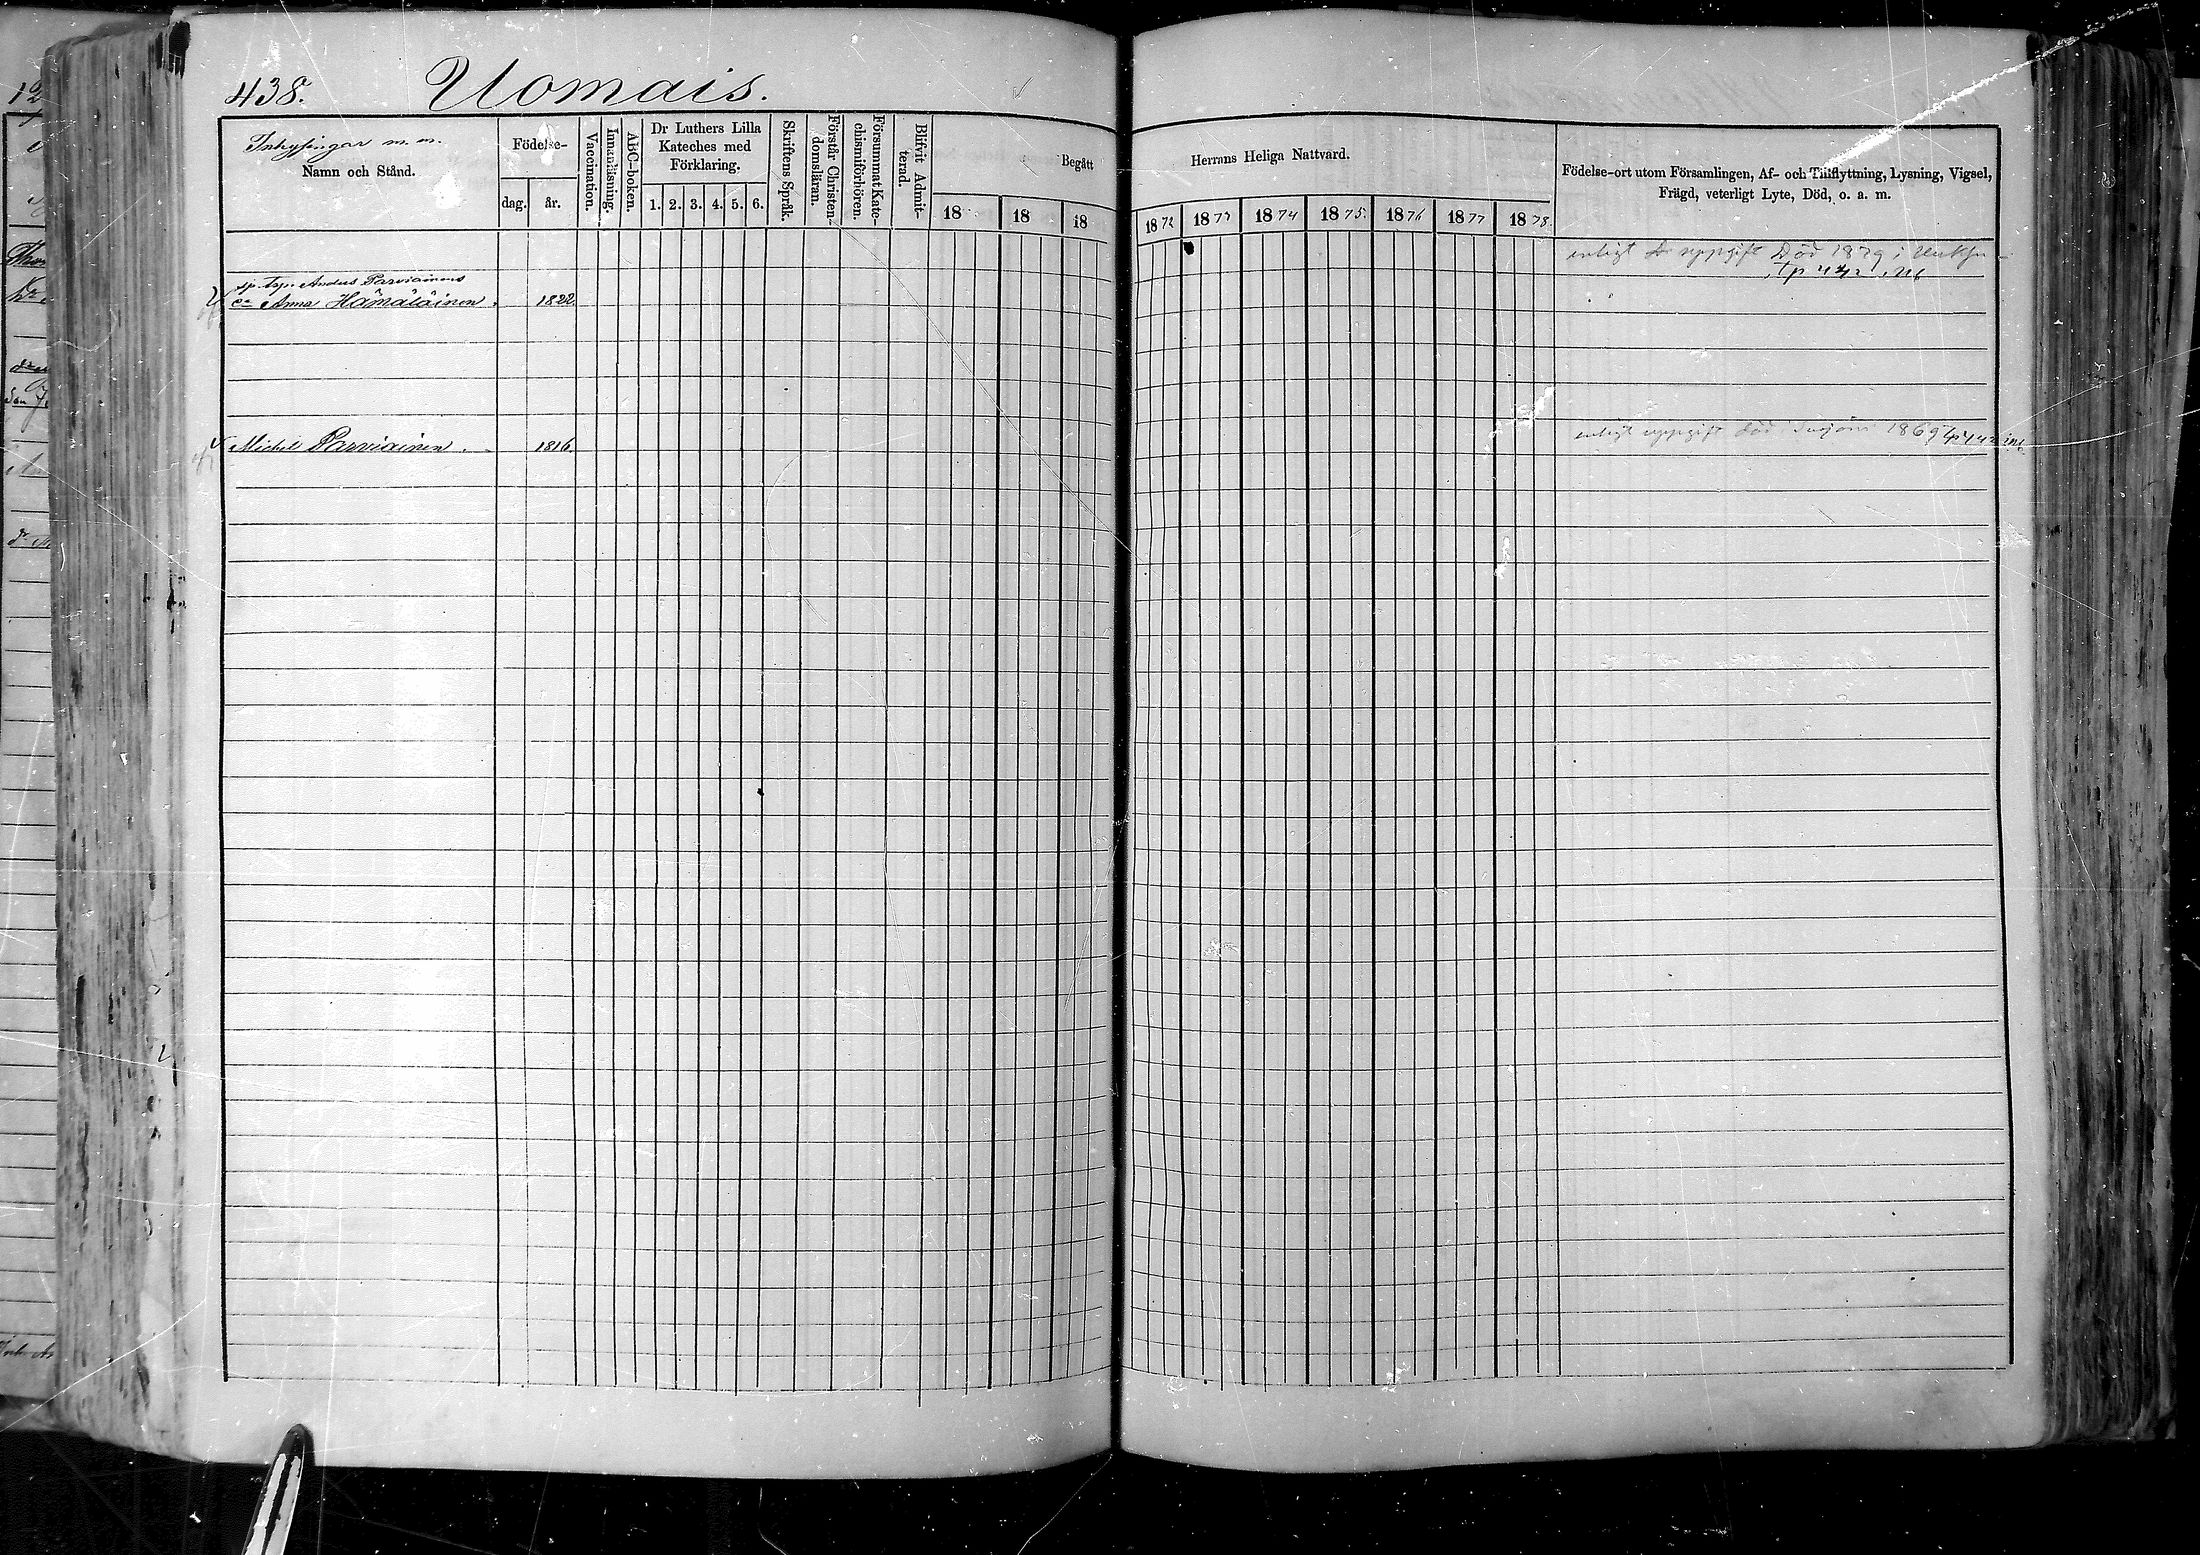 438. Uomais.
Inhysingar m. m.
Namn och Stånd.
Födelse-
dag. år.
Vaccination.
Innanläsning.
ABC-boken.
Dr Luthers Lilla
Kateches med
Förklaring.
1. 2. 3. 4. 5. 6.
Skriftens Språk.
Förstår Christen-
domsläran.
Försummat Kate-
chismiförhören.
Blifvit Admit-
terad.
Begått
18 18 18
Herrans Heliga Nattvard.
1872 1873 1874 1875. 1876 1877 1878.
Födelse-ort utom Församlingen, Af- och Tillflyttning, Lysning, Vigsel,
Frägd, veterligt Lyte, Död, o. a. m.
enligt uppgift Död 1879 i
Anders Parviainens
Anna Hämäläinen. 1822
Michel Parviainen. 1816
enligt uppgift död 1869